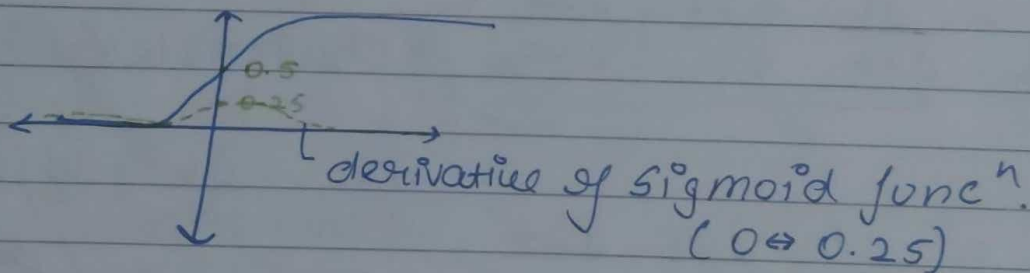 0.5
0.25
derivative of sigmoid funcⁿ.
(0 ↔ 0.25)